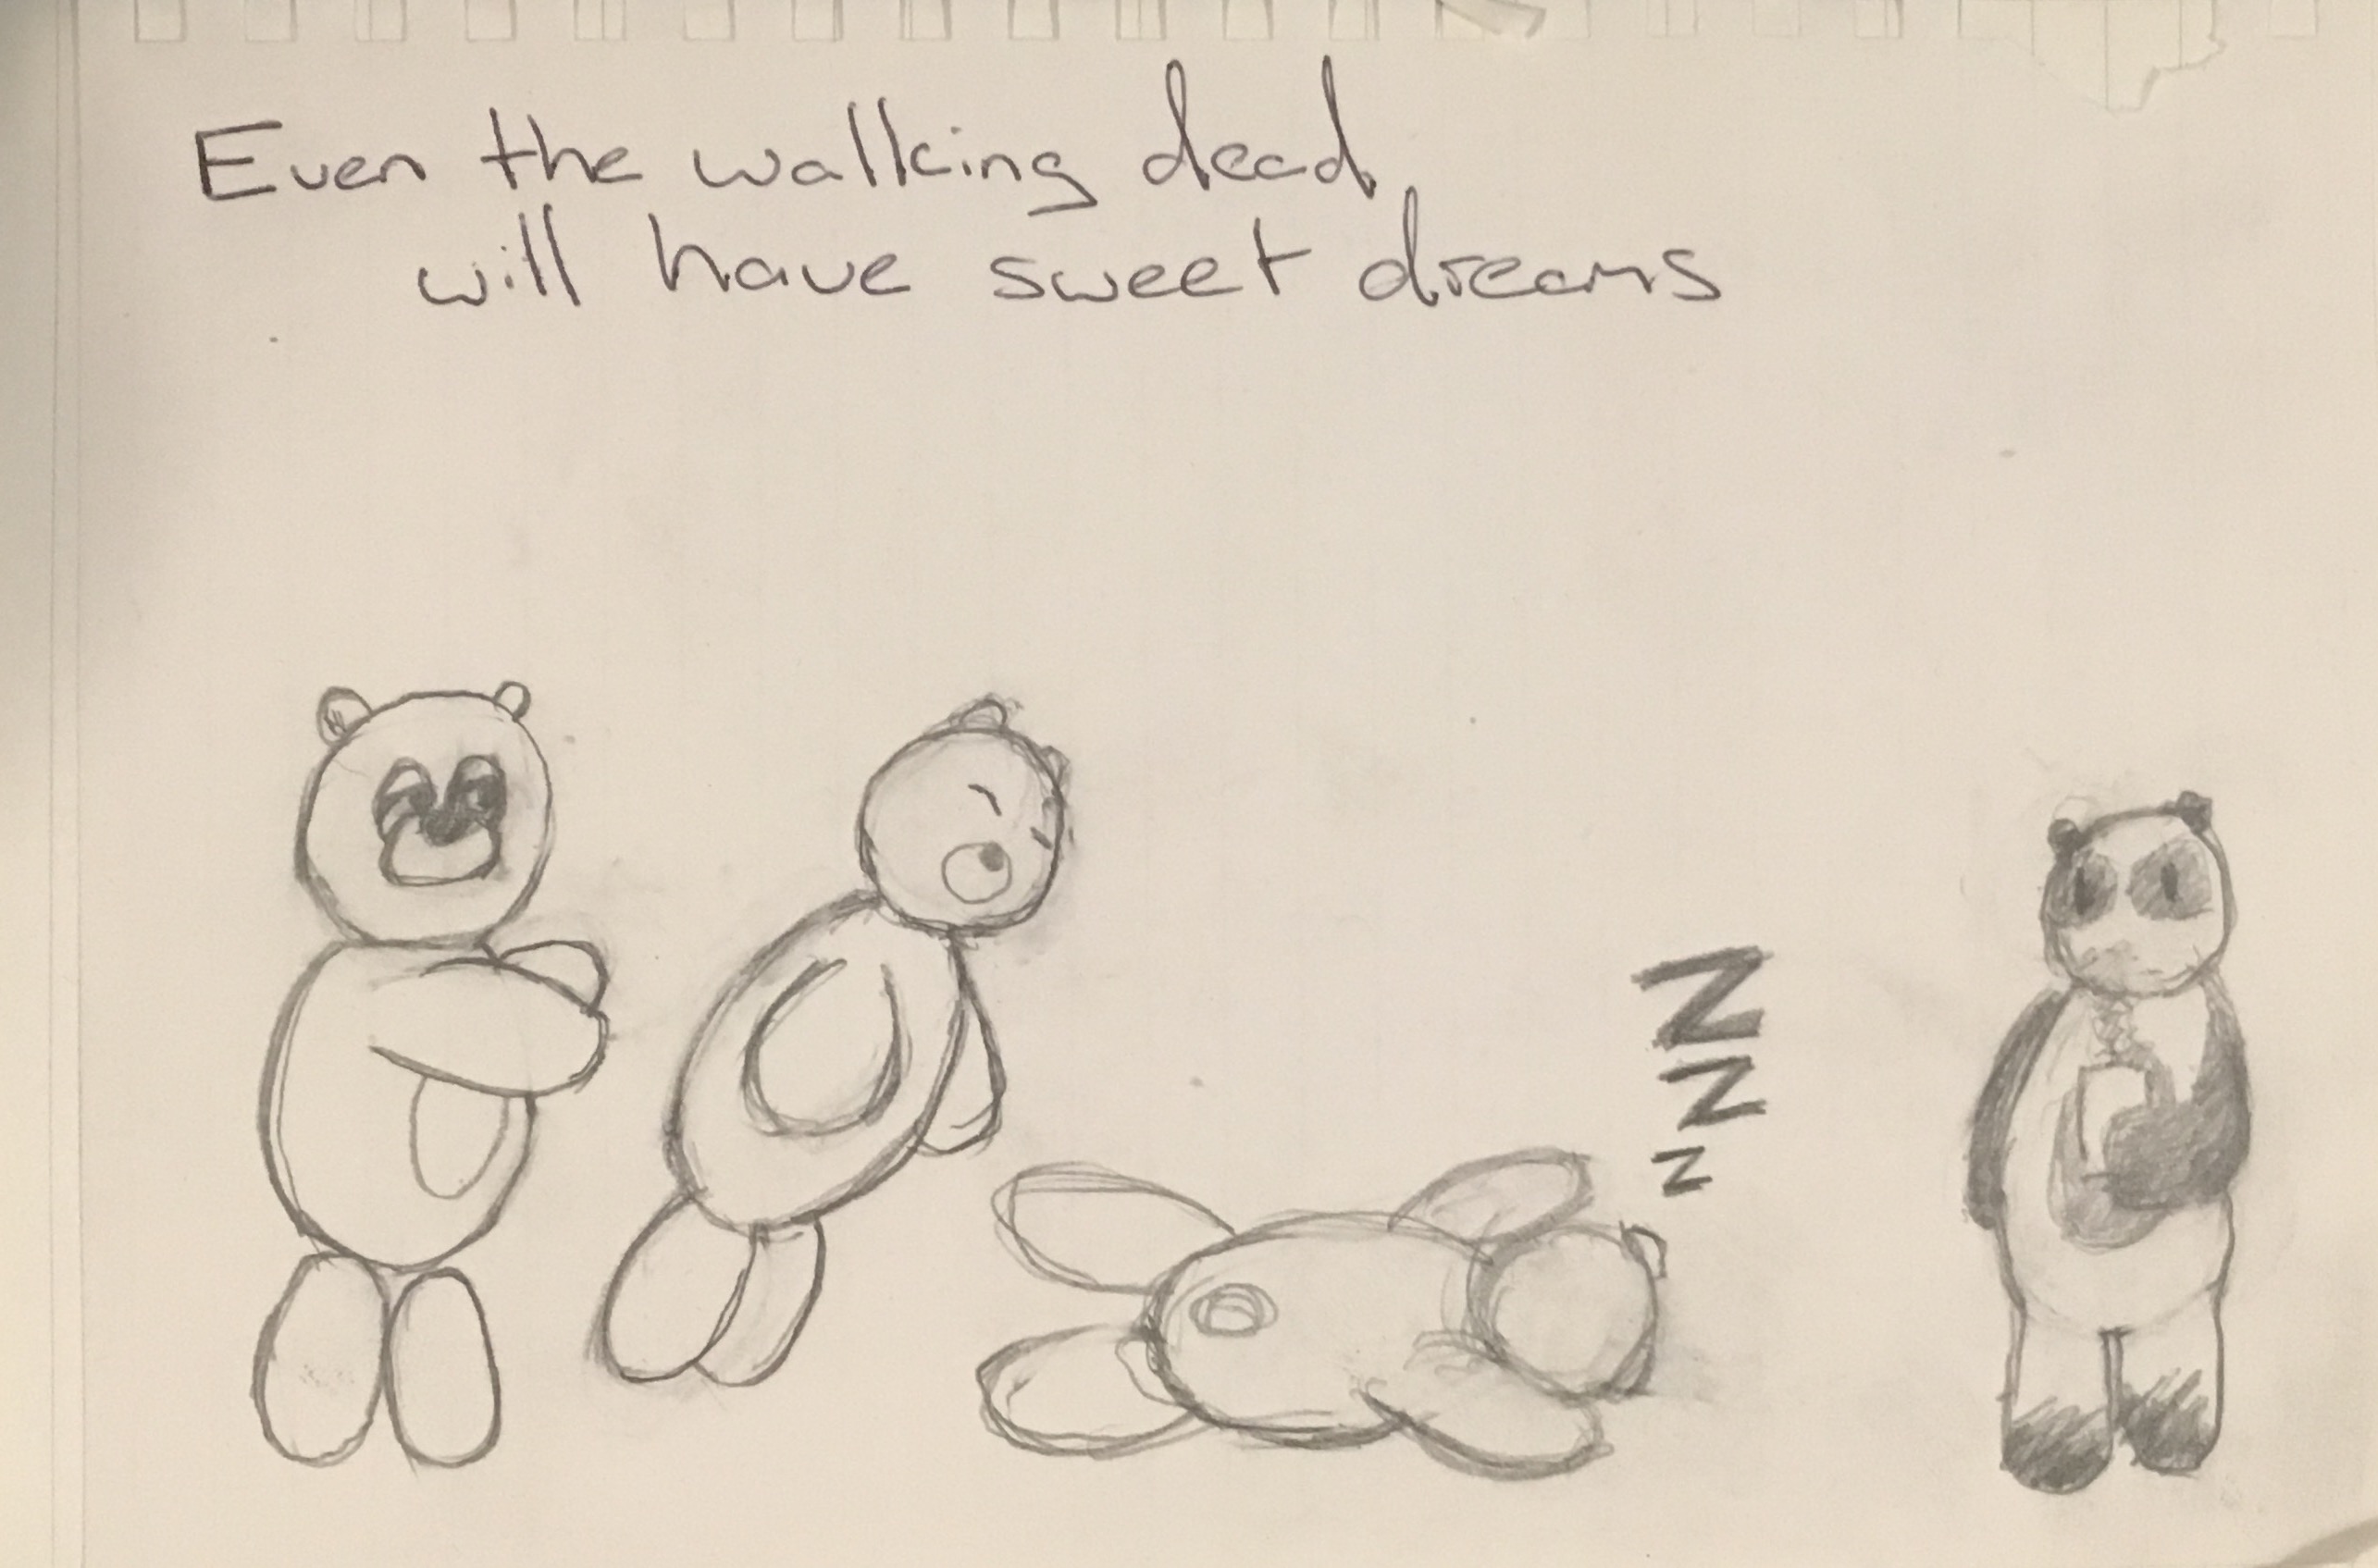 Even the walking dead
will have sweet dreams
Z
Z
Z